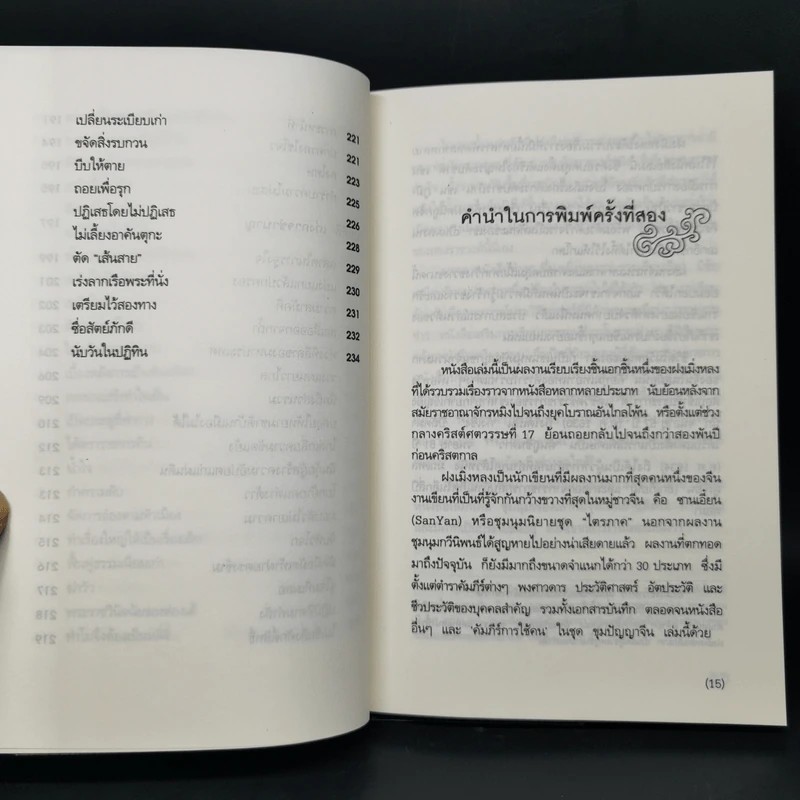 เปลี่ยนระเบียบเก่า 221
ขจัดสิ่งรบกวน 221
บีบให้ตาย 223
ถอยเพื่อรุก 225
ปฏิเสธโดยไม่ปฏิเสธ 226
ไม่เลี้ยงอาคันตุกะ 228
ตัด "เส้นสาย" 229
เร่งลากเรือพระที่นั่ง 230
เตรียมไว้สองทาง 231
ซื่อสัตย์ภักดี 232
นับวันในปฏิทิน 234
คำนำในการพิมพ์ครั้งที่สอง
หนังสือเล่มนี้เป็นผลงานเรียบเรียงชิ้นเอกชิ้นหนึ่งของฝงเมิ่งหลง
ที่ได้รวบรวมเรื่องราวจากหนังสือหลากหลายประเภท นับย้อนหลังจาก
สมัยราชอาณาจักรหมิงไปจนถึงยุคโบราณอันไกลโพ้น หรือตั้งแต่ช่วง
กลางคริสต์ศตวรรษที่ 17 ย้อนถอยกลับไปจนถึงกว่าสองพันปี
ก่อนคริสตกาล
ฝงเมิ่งหลงเป็นนักเขียนที่มีผลงานมากที่สุดคนหนึ่งของจีน
งานเขียนที่เป็นที่รู้จักกันกว้างขวางที่สุดในหมู่ชาวจีน คือ ซานเอี๋ยน
(SanYan) หรือชุมนุมนิยายชุด "ไตรภาค" นอกจากผลงาน
ชุมนุมกวีนิพนธ์ได้สูญหายไปอย่างน่าเสียดายแล้ว ผลงานที่ตกทอด
มาถึงปัจจุบัน ก็ยังมีมากถึงขนาดจำแนกได้กว่า 30 ประเภท ซึ่งมี
ตั้งแต่ตำราคัมภีร์ต่างๆ พงศาวดาร ประวัติศาสตร์ อัตประวัติ และ
ชีวประวัติของบุคคลสำคัญ รวมทั้งเอกสารบันทึก ตลอดจนหนังสือ
อื่นๆ และ 'คัมภีร์การใช้คน' ในชุด ขุมปัญญาจีน เล่มนี้ด้วย
(15)